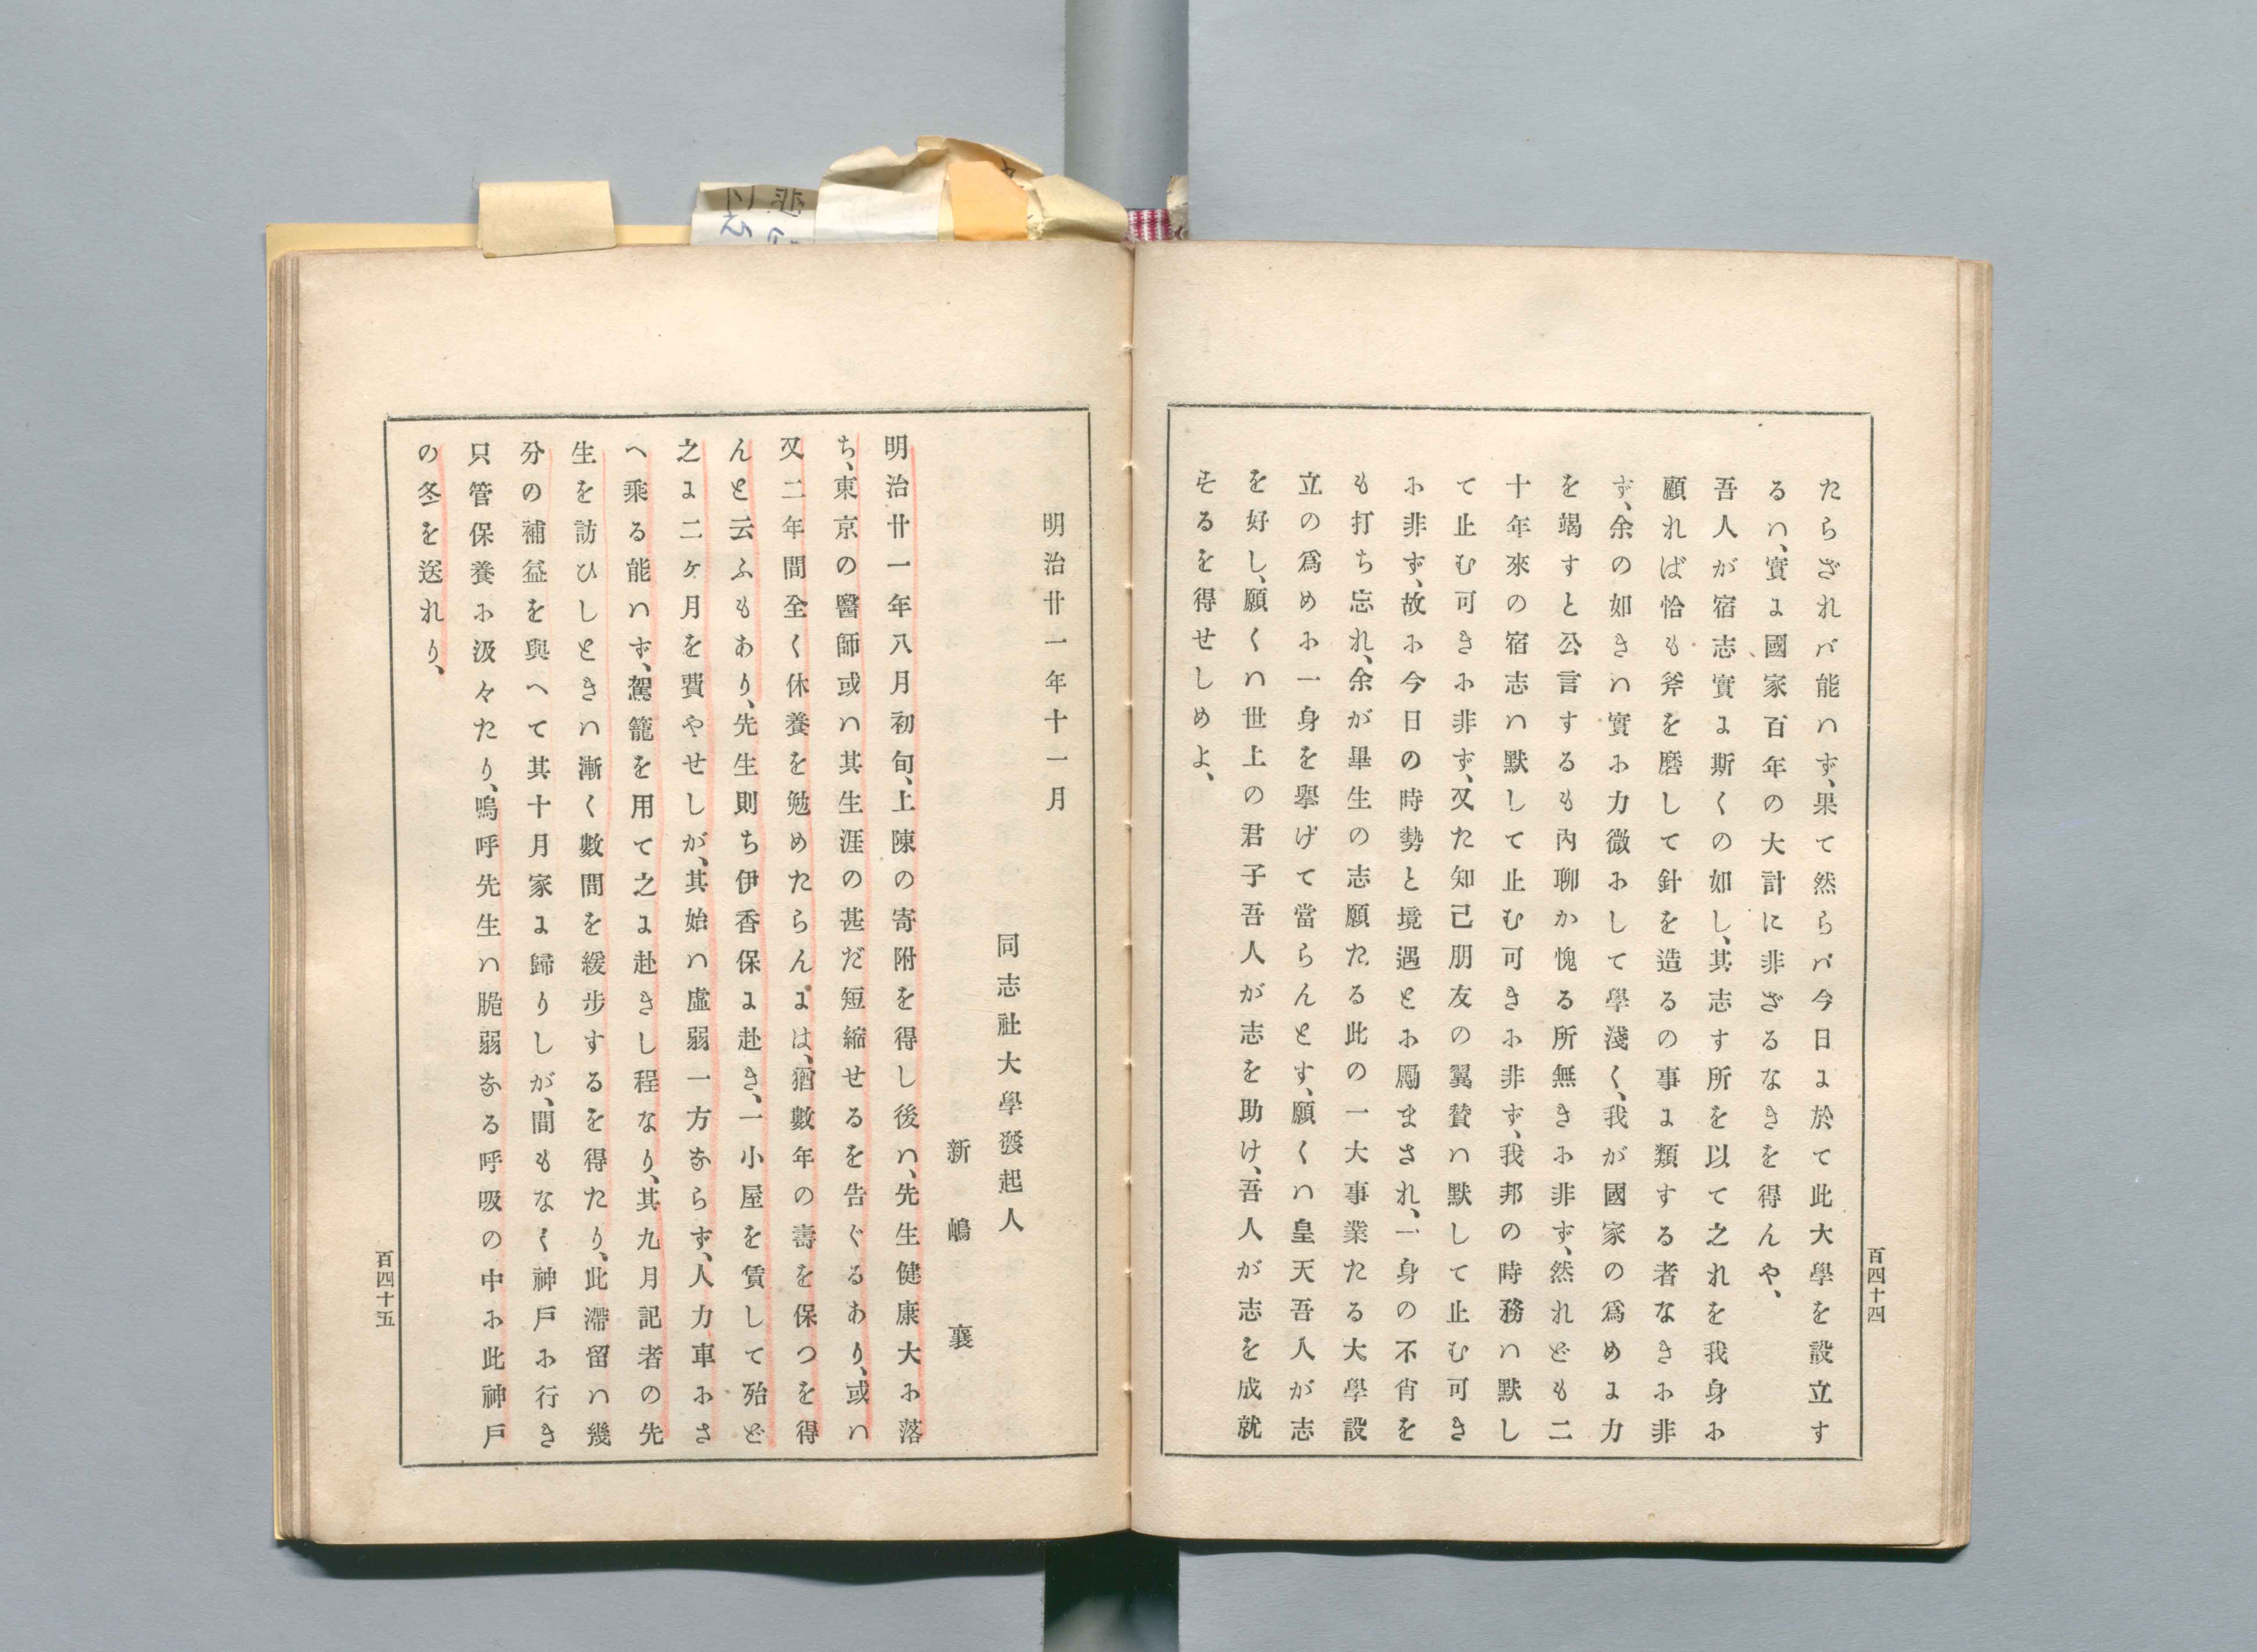 たらざれバ能ハず、果て然らバ今日ょ於て此大學を設立す
るハ、實ょ國家百年の大計に非ざるなきを得んや、
吾人が宿志實ょ斯くの如し、其志す所を以て之れを我身ホ
顧れば恰も斧を磨して針を造るの事ょ類する者なきホ非
ず、余の如きハ實ホ力微ホして學淺く、我が國家の爲めょ力
を竭すと公言するも內聊か愧る所無きホ非ず、然れども二
十年來の宿志ハ默して止む可きホ非ず、我邦の時務ハ默し
て止む可きホ非ず、又た知己朋友の翼賛ハ默して止む可き
ホ非ず、故ホ今日の時勢と境遇とホ勵まされ、一身の不肖を
も打ち忘れ、余が畢生の志願たる此の一大事業たる大學設
立の爲めホ一身を擧げて當らんとす、願くハ皇天吾人が志
を好し、願くハ世上の君子吾人が志を助け、吾人が志を成就
せるを得せしめよ、
百四十四
明治廿一年十一月
同志社大學發起人
新嶋襄
明治廿一年八月初旬、上陳の寄附を得し後ハ、先生健康大ホ落
ち、東京の醫師或ハ其生涯の甚だ短縮せるを告ぐるあり、或ハ
又二年間全く休養を勉めたらんょは、猶數年の壽を保つを得
んと云ふもあり、先生則ち伊香保ょ赴き、一小屋を賃して殆ど
之ょ二ヶ月を費やせしが、其始ハ虛弱一方ならず、人力車ホさ
へ乘る能ハず、駕籠を用て之ょ赴きし程なり、其九月記者の先
生を訪ひしときハ漸く數間を緩步するを得たり、此滯留ハ幾
分の補益を與へて其十月家ょ歸りしが、間もなく神戶ホ行き
只管保養ホ汲々たり、嗚呼先生ハ脆弱なる呼吸の中ホ此神戶
の冬を送れり、
百四十五